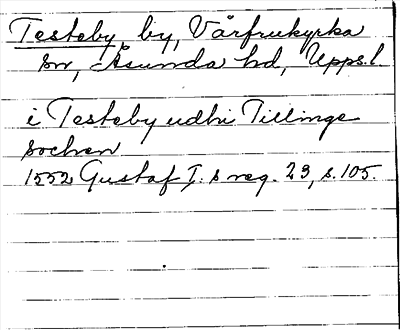 Testeby by, Vårfrukyrka
sn, Åsunda hd, Upps.l.
i Testeby udhi Tillinge
sochen
1552 Gustaf I:s reg. 23, s. 105.